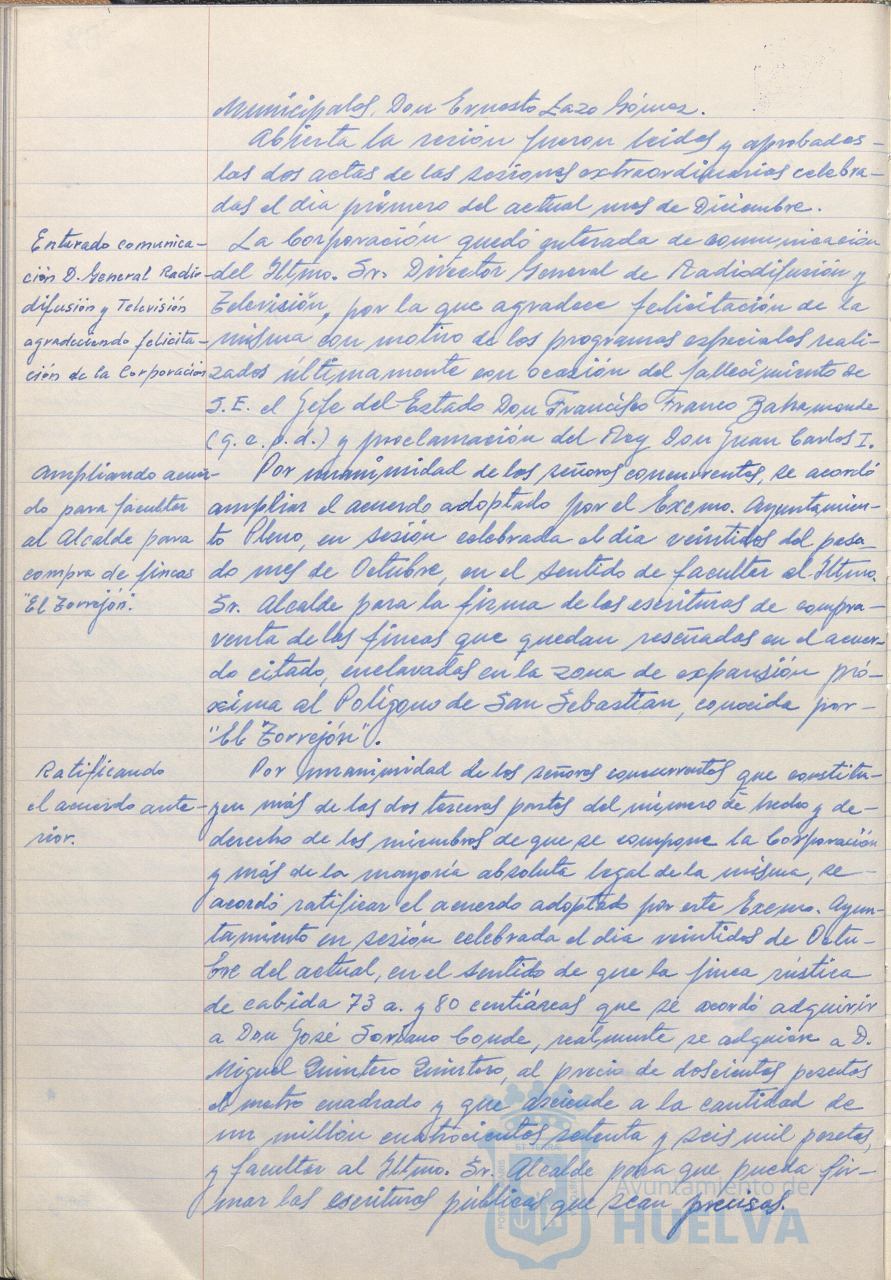 Municipales, Don Ernesto Lazo Gómez.
Abierta la sesión fueron leidas y aprobadas -
las dos actas de las sesiones extraordinarias celebra-
das el dia primero del actual mes de Diciembre.
Enterado comunica-
ción D. General Radio-
difusión y Televisión
agradeciendo felicita-
ción de la Corporación
La Corporación quedó enterada de comunicación
del Iltmo. Sr. Director General de Radiodifusión y
Televisión, por la que agradece felicitación de la
misma con motivo de los programas especiales reali-
zados últimamente con ocasión del fallecimiento de
S.E. el Jefe del Estado Don Francisco Franco Bahamonde
(q. e. p. d.) y proclamación del Rey Don Juan Carlos I.
Ampliando acuer-
do para facultar
al Alcalde para
compra de fincas
"El Torrejón".
Por unanimidad de los señores concurrentes, se acordó
ampliar el acuerdo adoptado por el Excmo. Ayuntamien-
to Pleno, en sesión celebrada el dia veintidos del pasa-
do mes de Octubre, en el sentido de facultar al Iltmo.
Sr. Alcalde para la firma de las escrituras de compra-
venta de las fincas que quedan reseñadas en el acuer-
do citado, enclavadas en la zona de expansión pró-
xima al Polígono de San Sebastian, conocida por -
"El Torrejón".
Ratificando
el acuerdo ante-
rior.
Por unanimidad de los señores concurrentes que constitu-
yen más de las dos terceras partes del número de hecho y de-
derecho de los miembros de que se compone la Corporación
y más de la mayoría absoluta legal de la misma, se -
acordó ratificar el acuerdo adoptado por este Excmo. Ayun-
tamiento en sesión celebrada el dia veintidos de Octu-
bre del actual, en el sentido de que la finca rústica
de cabida 73 a. y 80 centiáreas que se acordó adquirir
a Don José Soriano Conde, realmente se adquiere a D.
Miguel Quintero Quintero, al precio de doscientas pesetas
el metro cuadrado y que asciende a la cantidad de
un millón cuatrocientas setenta y seis mil pesetas,
y facultar al Iltmo. Sr. Alcalde para que pueda fir-
mar las escrituras públicas que sean precisas.
Ayuntamiento de
HUELVA